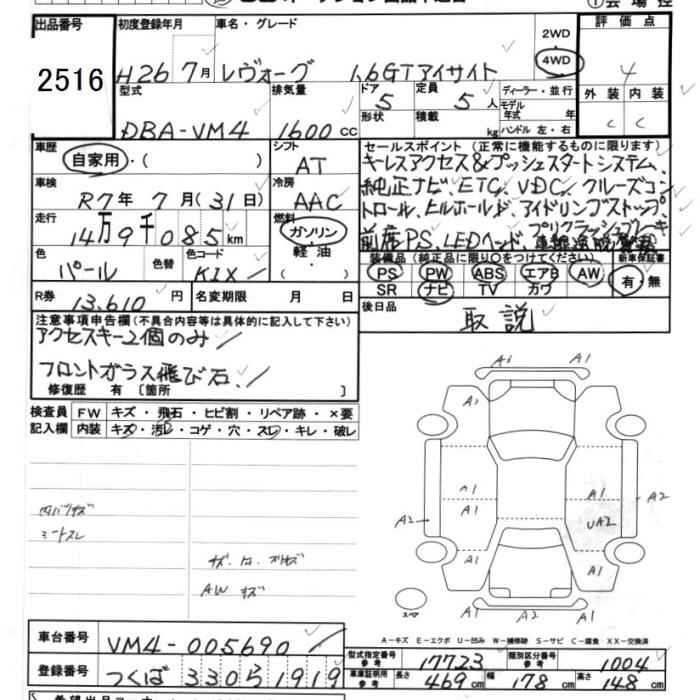 出品番号 初度登録年月 車名・グレード 2WD 評価点
2516 H26 7月 レヴォーグ 1.6GTアイサイト 4WD 4
型式 排気量 ドア 5 定員 5人 ディーラー・並行 外装 内装
DBA-VM4 1600cc 形状 積載 kg モデル年式 年式 ハンドル 左・右 C C
車歴 自家用・( ) シフト AT
セールスポイント (正常に機能するものに限ります)
キーレスアクセス&プッシュスタートシステム、
純正ナビ、ETC、VDC、クルーズコン
トロール、ヒルホールド、アイドリングストップ、
プリクラッシュブレーキ
前席PS、LEDヘッド、
車検 R7年 7月(31日) 冷房 AAC
走行 14万9千085km 燃料 ガソリン・軽油・( )
色 パール 色替 色コード KIX
装備品 (純正品に限り○をつけてください) 新車保証書
PS PW ABS エアB AW 有・無
SR ナビ TV カワ
R券 13,610円 名変期限 月 日
後日品 取説
注意事項申告欄(不具合内容等は具体的に記入して下さい)
アクセスキー2個のみ
フロントガラス飛び石
修復歴 有 [箇所 ]
検査員 FW キズ・飛石・ヒビ割・リペア跡・×要
記入欄 内装 キズ・汚レ・コゲ・穴・スレ・キレ・破レ
A1 A1
A1
A1 A1
A2 A1 A1 A2
UA2
A1 A1
A1 A2 A1
スペア
シートスレ
AW キズ
A－キズ E－エクボ U－凹み W－補修跡 S－サビ C－腐食 XX－交換済
車台番号 VM4-005690
型式指定番号 参考 17723 類別区分番号 参考 1004
登録番号 つくば 330 ら 1919
車庫証明用 参考 長さ 469cm 幅 178cm 高さ 148cm